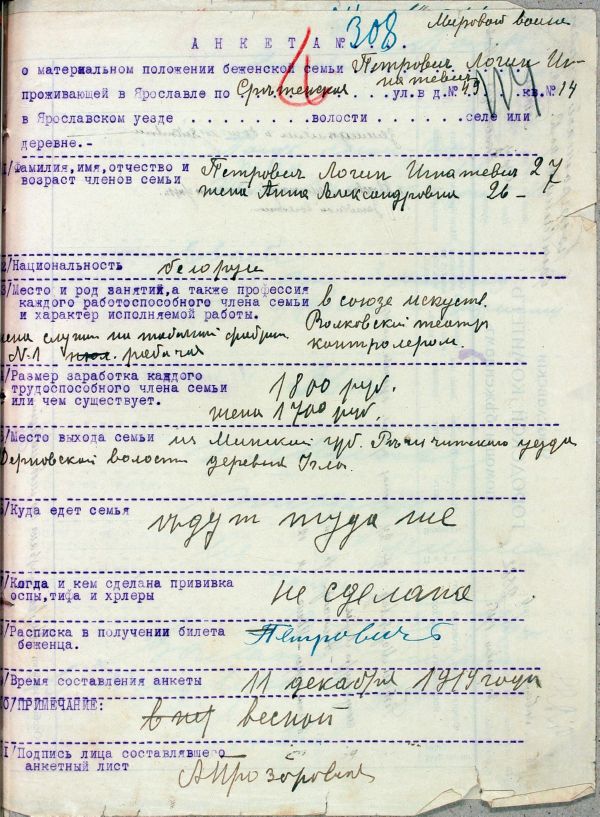 Мировой войны
АНКЕТА № 308
о материальном положении беженской семьи Петрович Логин Иг-
натевич
проживающей в Ярославле по Срътенская ул. в д. № 49 кв. № 14
в Ярославском уезде . . . . . . . волости . . . . . . . селе или
деревне.-
1/Фамилия,имя,отчество и Петрович Логин Игнатевич 27
возраст членов семьи жена Анна Александровна 26 -
2/Национальность белорус
3/Место и род занятий,а также профессия
каждого работоспособного члена семьи в союзе искуств.
и характер исполняемой работы. Волковский театр
жена служит на табачной фабрике контролером.
№1 рабочая
4/Размер заработка каждого
трудоспособного члена семьи 1800 руб.
или чем существует. жена 1700 руб.
5/Место выхода семьи из Минской губ. Ръчицкого уезда
волости деревня
6/Куда едет семья едут туда же
7/Когда и кем сделана прививка
оспы,тифа и хрлеры не сделана
8/Расписка в получении билета Петровичъ
беженца.
9/Время составления анкеты 11 декабря 1919 года
10/ПРИМЕЧАНИЕ: весной
11/Подпись лица составлявшего
анкетный лист